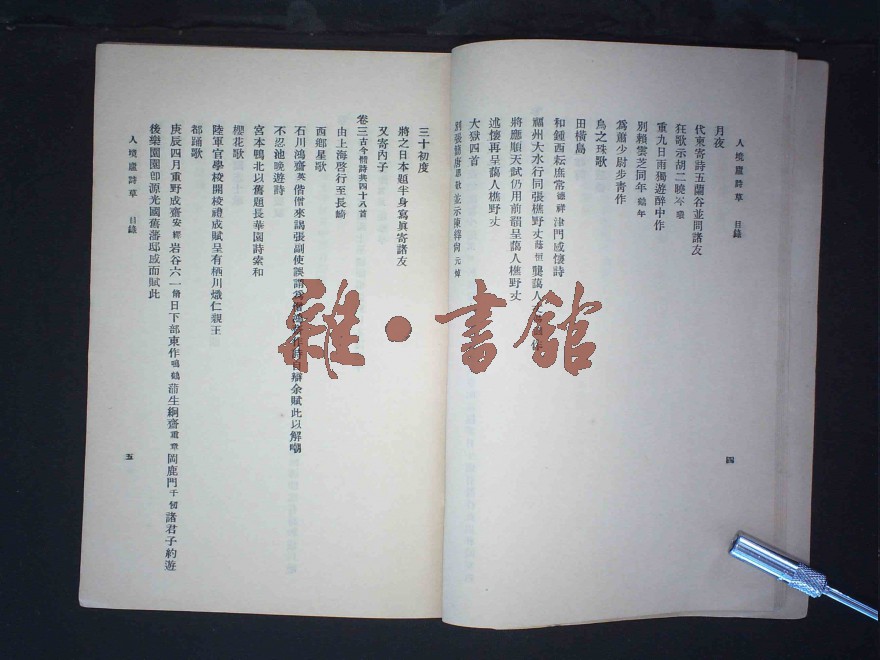 人境廬詩草 目錄
月夜
代柬寄詩五蘭谷並問諸友
狂歌示胡二曉岑曦
重九日雨獨遊醉中作
別賴雲芝同年鶴年
為蕭少尉步青作
烏之珠歌
田橫島
和鍾西耘庶常德祥津門感懷詩
福州大水行同張樵野丈蔭恒龔藹人
將應順天試仍用前韻呈藹人樵野丈
述懷再呈藹人樵野丈
大獄四首
別張簡唐思敬並示陳縡尚元焯
四
三十初度
將之日本題半身寫眞寄諸友
又寄內子
卷三古今體詩共四十八首
由上海啓行至長崎
西鄉星歌
石川鴻齋英偕僧來謁張副使誤謂爲
自辯余賦此以解嘲
不忍池晚遊詩
宮本鴨北以舊題長華園詩索和
櫻花歌
陸軍官學校開校禮成賦呈有栖川熾仁親王
都踊歌
庚辰四月重野成齋安繹岩谷六一脩日下部東作鳴鶴蒲生絅齋重章岡鹿門千仞諸君子約遊
後樂園園卽源光國舊藩邸感而賦此
人境廬詩草 目錄
五
雜·書館